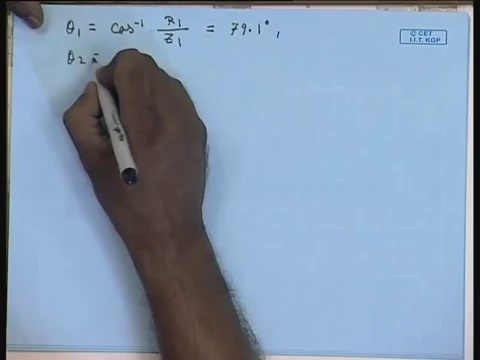 θ₁ = cos⁻¹ R₁/Z₁ = 79.1°,
© CET
I.I.T. KGP
θ₂ =